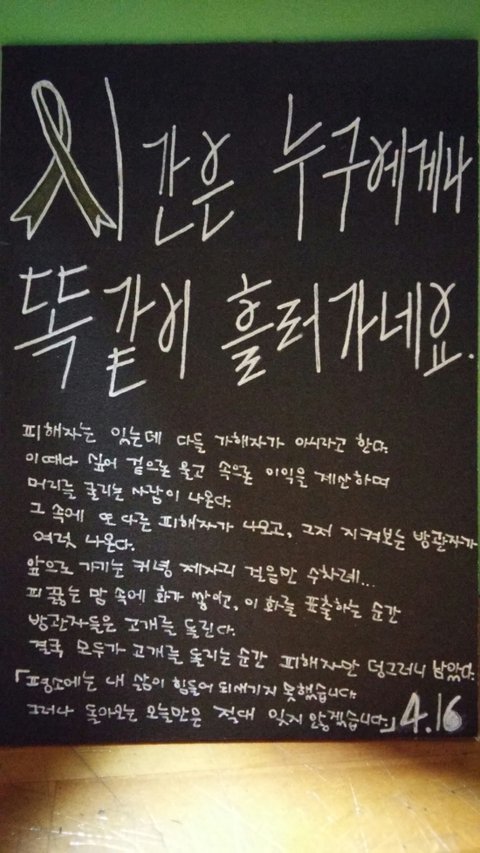 시간은 누구에게나
똑같이 흘러가네요.
피해자는 있는데 다들 가해자가 아니라고 한다.
이때다 싶어 겉으로 울고 속으로 이익을 계산하며
머리를 굴리는 사람이 나온다.
그 속에 또 다른 피해자가 나오고, 그저 지켜보는 방관자가
여럿 나온다.
앞으로 가기는 커녕 제자리 걸음만 수차례...
피 끓는 맘 속에 화가 쌓이고, 이 화를 표출하는 순간
방관자들은 고개를 돌린다.
결국 모두가 고개를 돌리는 순간 피해자만 덩그러니 남았다.
「평소에는 내 삶이 힘들어 되새기지 못했습니다.
그러나 돌아오는 오늘만은 절대 잊지 않겠습니다.」 4.16